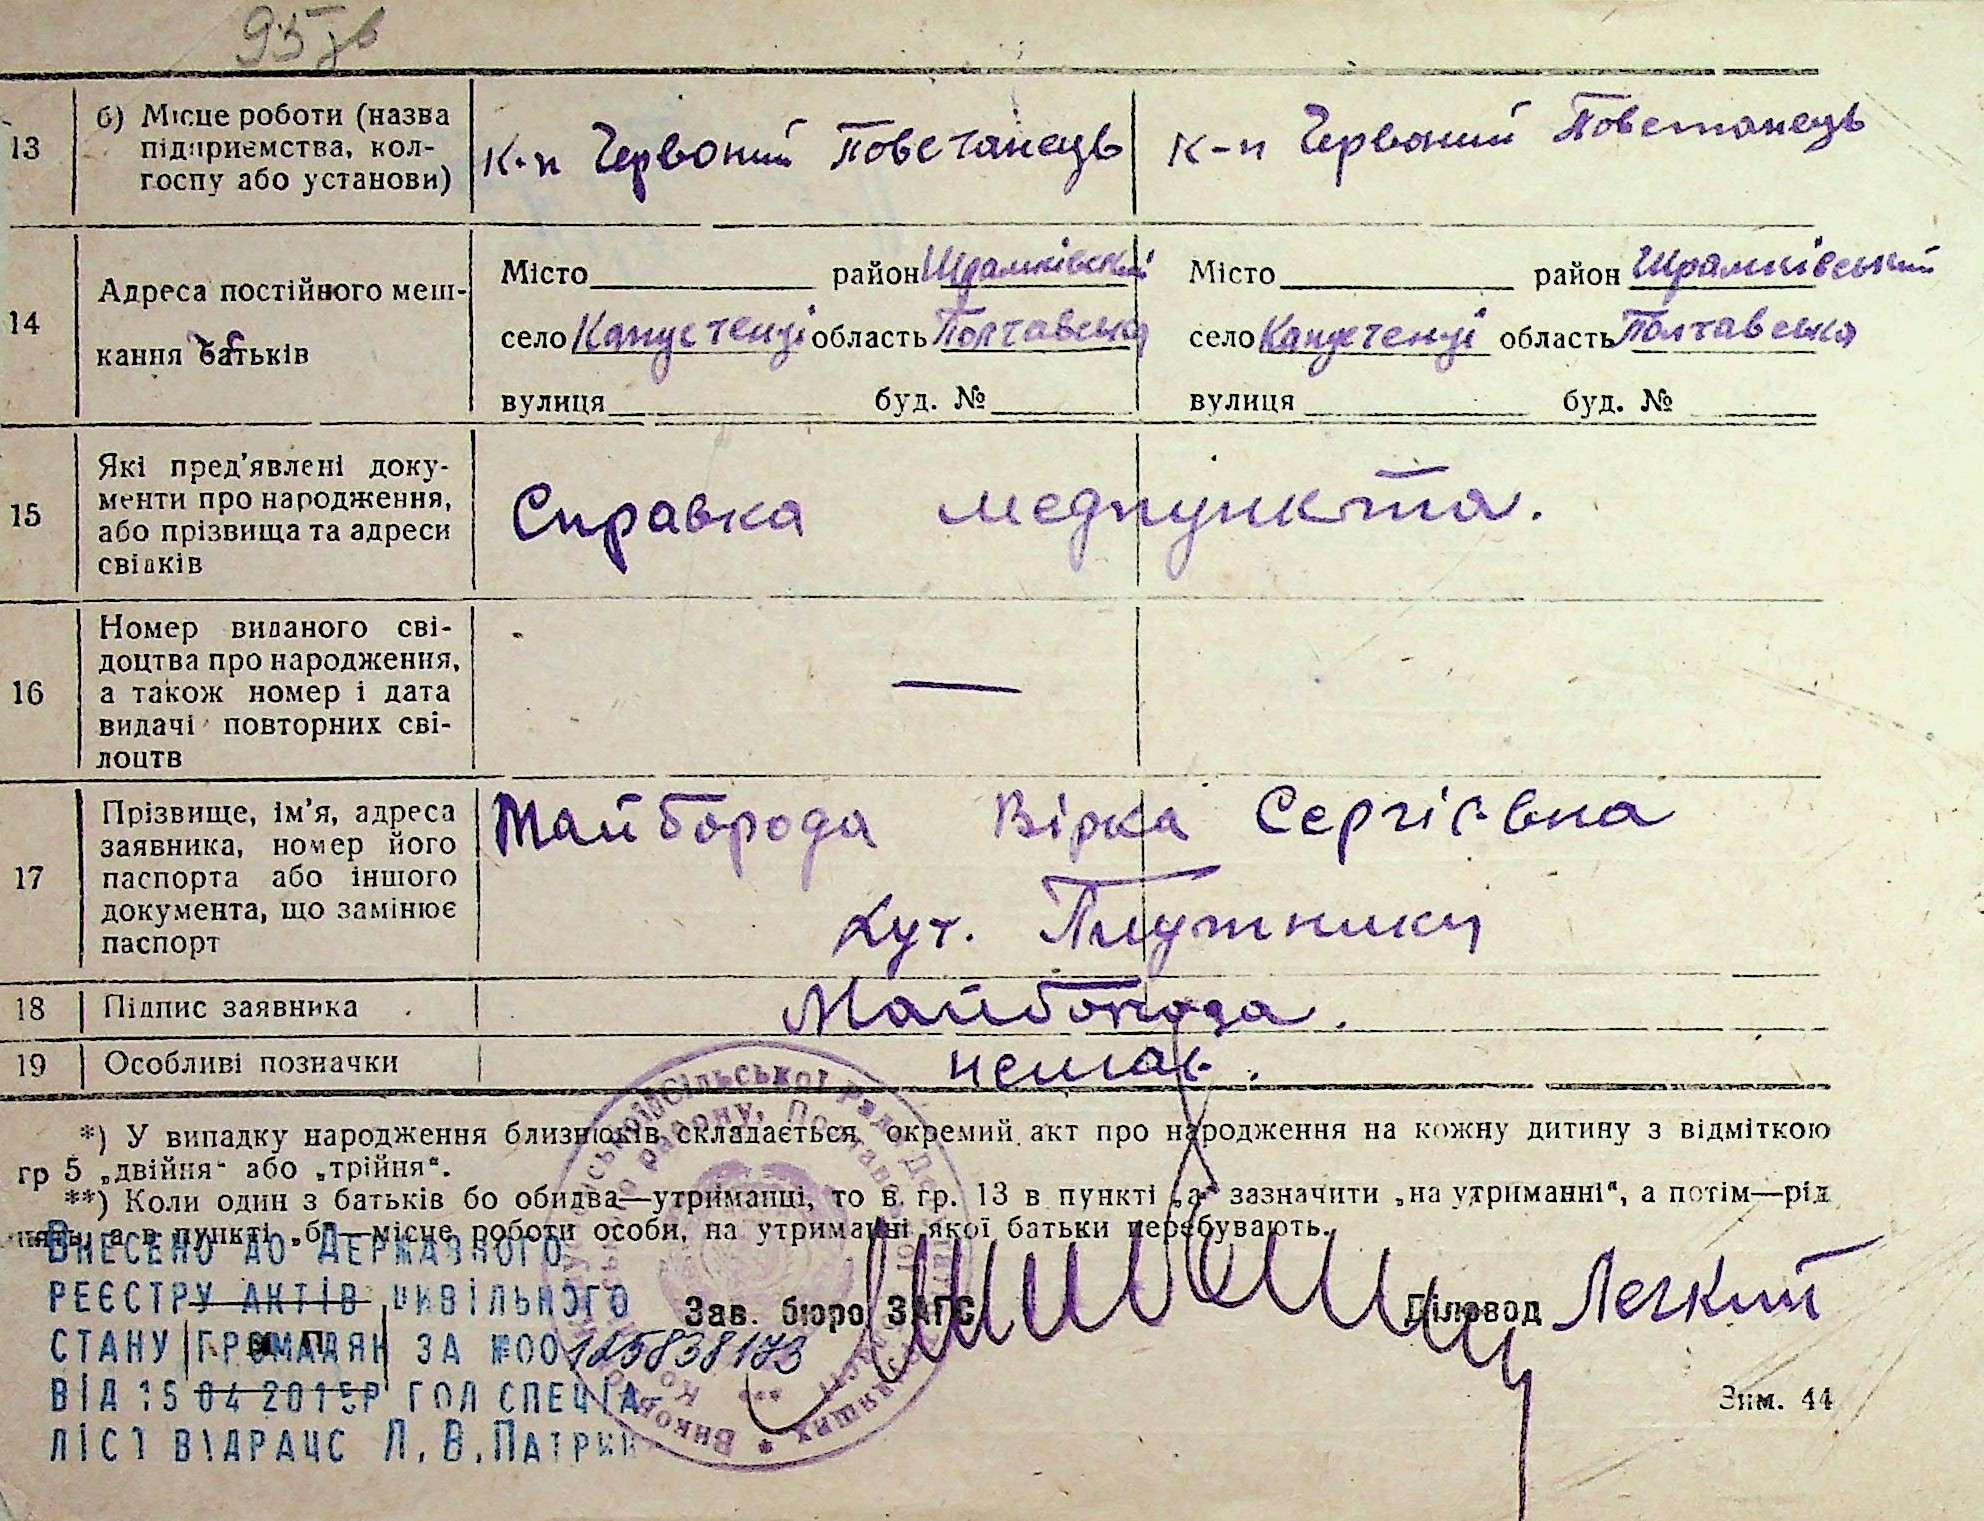 95
13
б) Місце роботи (назва
підприємства, кол-
госпу або установи)
к-п Червоний Повстанець
к-п Червоний Повстанець
14
Адреса постійного меш-
кання батьків
Місто район Шрамківський
село Капустенці область Полтавська
вулиця буд. №
Місто район Шрамківський
село Капустенці область Полтавська
вулиця буд. №
15
Які пред'явлені доку-
менти про народження,
або прізвища та адреси
свідків
Справка медпункта.
16
Номер виданого сві-
доцтва про народження,
а також номер і дата
видачі повторних сві-
доцтв
—
17
Прізвище, ім'я, адреса
заявника, номер його
паспорта або іншого
документа, що замінює
паспорт
Майборода Вірка Сергієвна
хут. Плужники
18
Підпис заявника
Майборода.
19
Особливі позначки
немає.
*) У випадку народження близнюків складається окремий акт про народження на кожну дитину з відміткою
гр 5 „двійня“ або „трійня“.
**) Коли один з батьків бо обидва—утриманці, то в гр. 13 в пункті „а“ зазначити „на утриманні“, а потім—рід
а в пункті „б“—місце роботи особи, на утриманні якої батьки перебувають.
Внесено до Державного
реєстру актів цивільного
стану громадян за №00125838173
від 15 04 2015р гол спеціа-
ліст відрацс Л. В. Патрик
М П
Зав. бюро ЗАГС
Діловод Легкий
Зам. 44